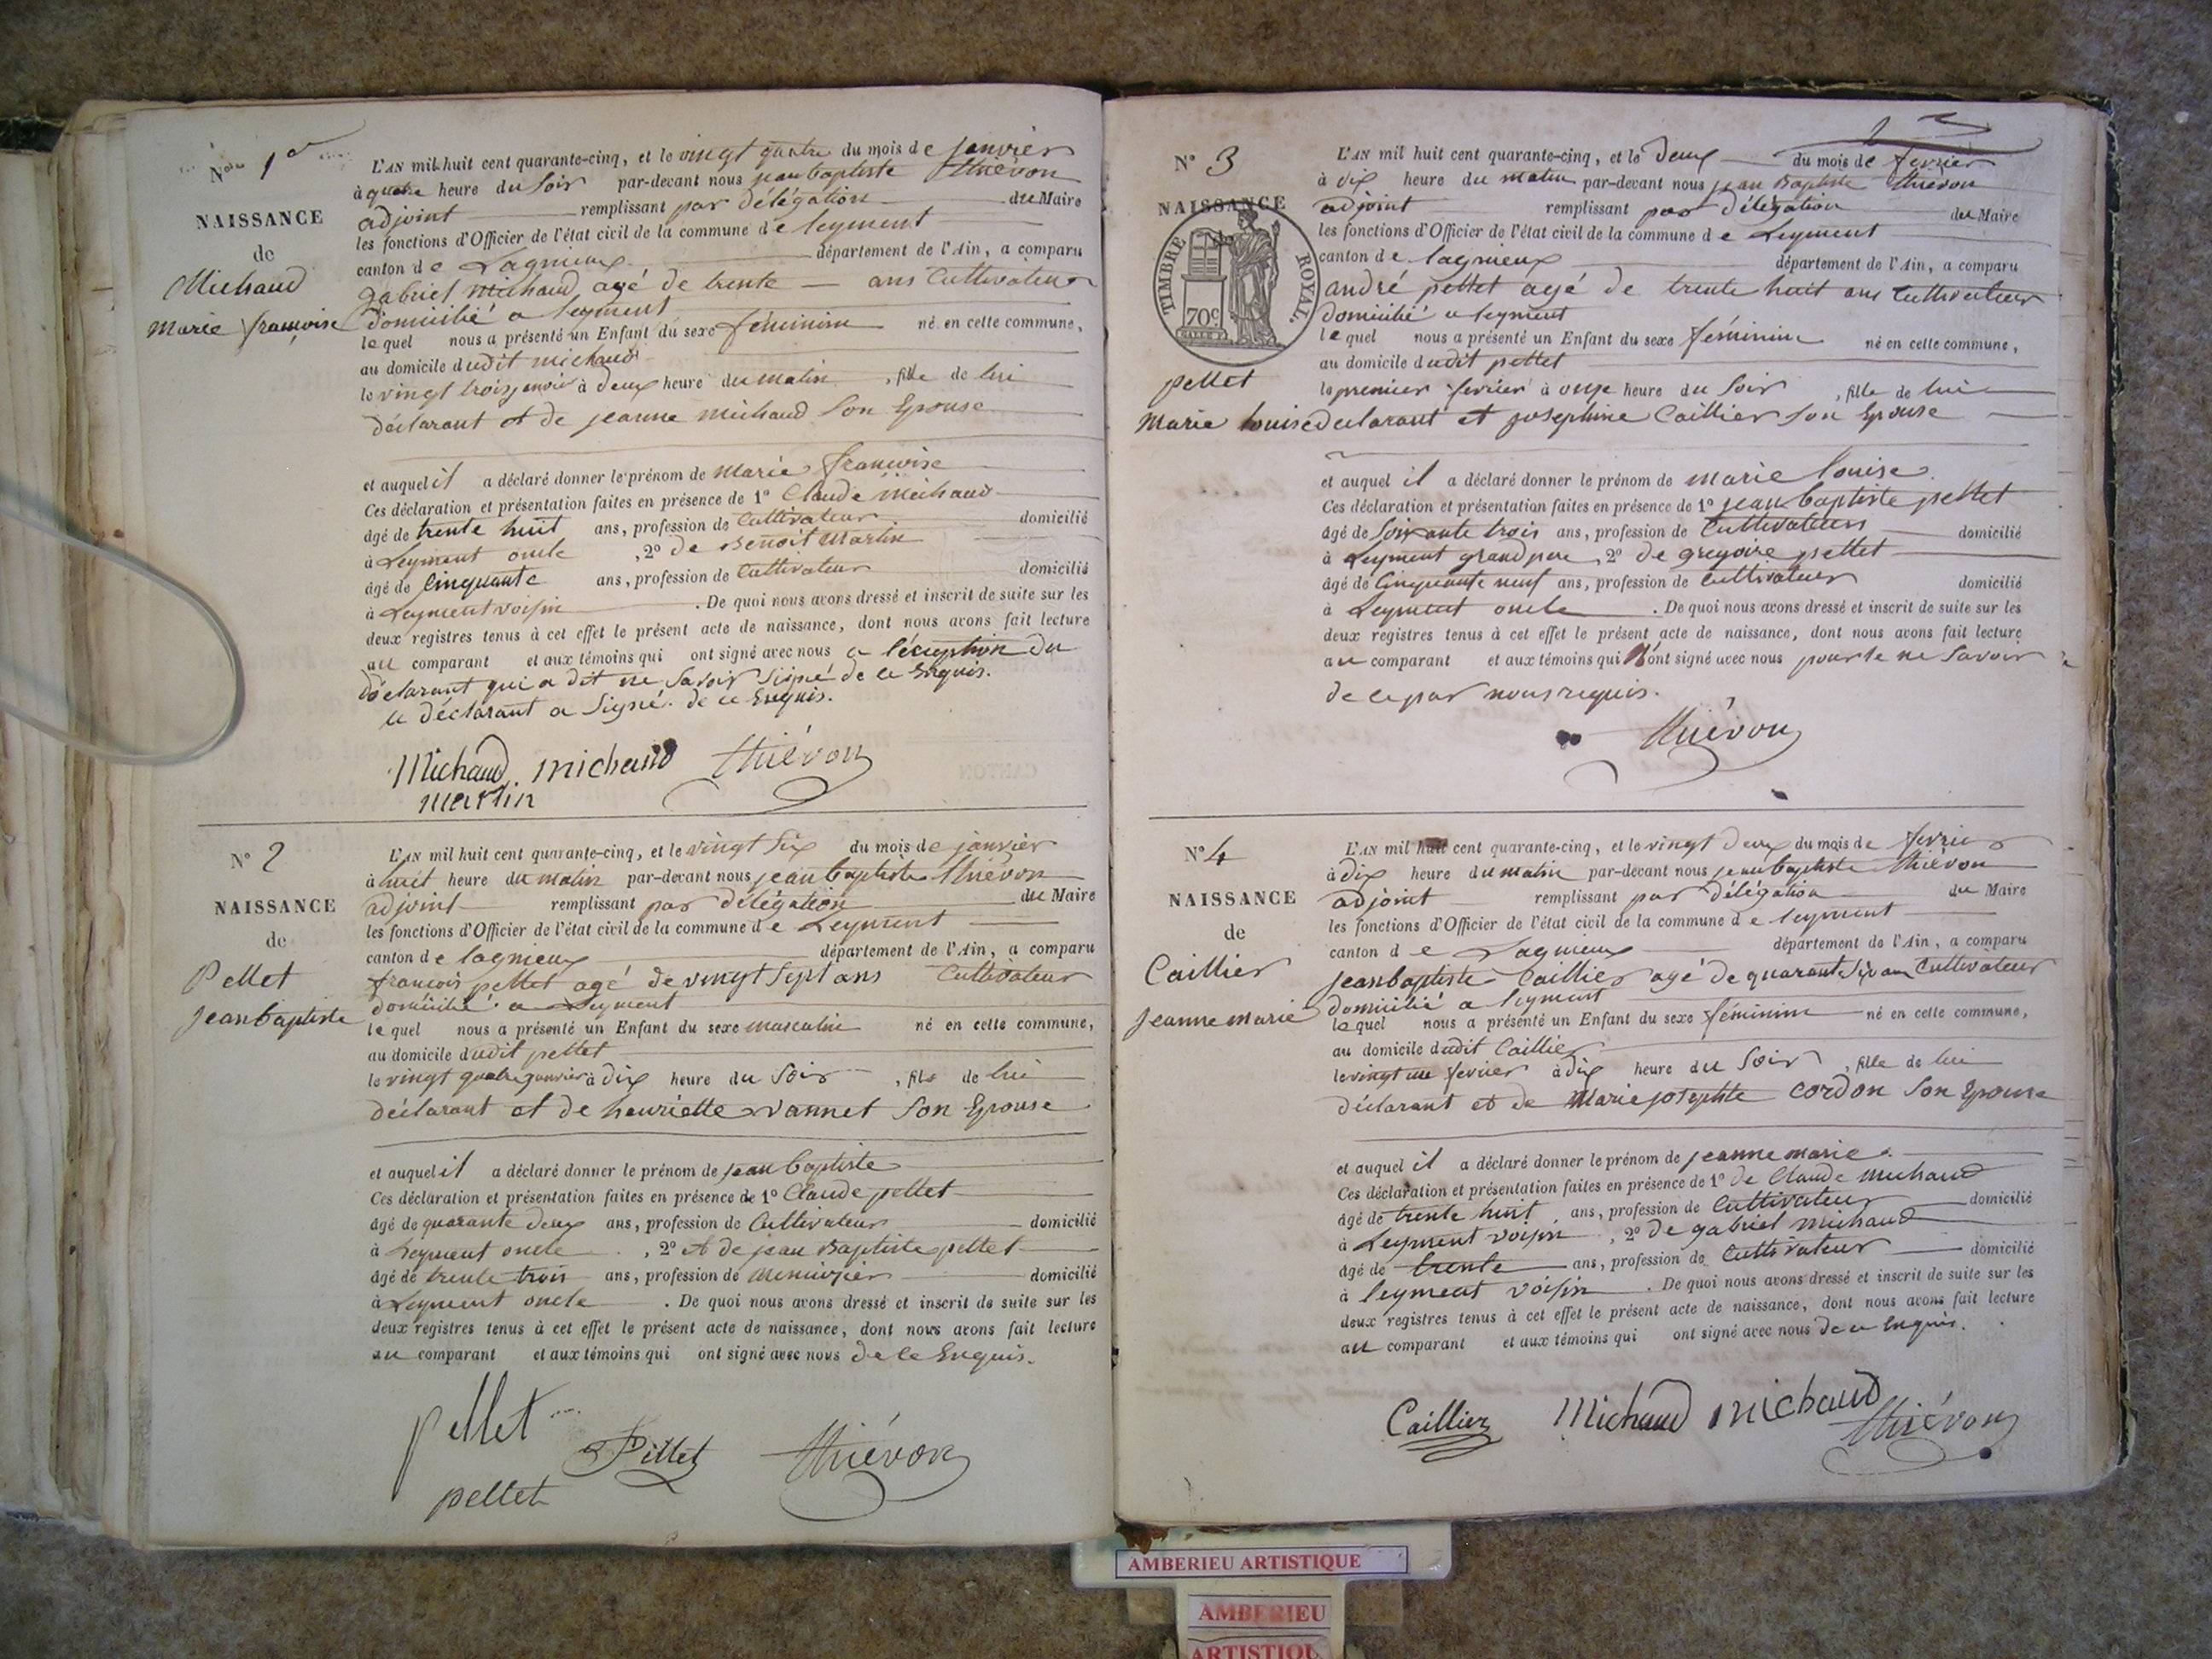 N° 1er
NAISSANCE
de
Michaud
Marie françoise
L'AN mil huit cent quarante-cinq, et le vingt quatre du mois de janvier
à quatre heure du soir par-devant nous jean baptiste Thiévon
adjoint remplissant par délégation du Maire
les fonctions d'Officier de l'état civil de la commune de leyment
canton de Lagnieux département de l'Ain, a comparu
gabriel michaud agé de trente ans Cultivateur
domicilié a leyment
lequel nous a présenté un Enfant du sexe féminin né en cette commune,
au domicile dudit michaud
le vingt trois janvier à deux heure du matin, fille de lui
déclarant et de jeanne michaud son Epouse
et auquel il a déclaré donner le prénom de marie francoise
Ces déclaration et présentation faites en présence de 1° Claude michaud
âgé de trente huit ans, profession de Cultivateur domicilié
à Leyment oncle, 2° de Benoit Martin
âgé de Cinquante ans, profession de Cultivateur domicilié
à Leyment voisin. De quoi nous avons dressé et inscrit de suite sur les
deux registres tenus à cet effet le présent acte de naissance, dont nous avons fait lecture
au comparant et aux témoins qui ont signé avec nous a l'éception du
déclarant qui a dit ne savoir signé de ce Enquis.
le déclarant a signé. de ce Enquis.
Michaud michaud Thiévon
martin
N° 2
NAISSANCE
de
Pellet
jean baptiste
L'AN mil huit cent quarante-cinq, et le vingt six du mois de janvier
à huit heure du matin par-devant nous jean baptiste Thiévon
adjoint remplissant par délégation du Maire
les fonctions d'Officier de l'état civil de la commune de Leyment
canton de lagnieux département de l'Ain, a comparu
francois pellet agé de vingt sept ans Cultivateur
domicilié a Leyment
lequel nous a présenté un Enfant du sexe masculin né en cette commune,
au domicile dudit pellet
le vingt quatre janvier à dix heure du soir, fils de lui
déclarant et de henriette vannet son Epouse
et auquel il a déclaré donner le prénom de jean baptiste
Ces déclaration et présentation faites en présence de 1° Claude pellet
âgé de quarante deux ans, profession de Cultivateur domicilié
à Leyment oncle, 2° et de jean Baptiste pellet
âgé de trente trois ans, profession de menuisier domicilié
à Leyment oncle. De quoi nous avons dressé et inscrit de suite sur les
deux registres tenus à cet effet le présent acte de naissance, dont nous avons fait lecture
au comparant et aux témoins qui ont signé avec nous de ce Enquis.
pellet Pellet Thiévon
pellet
N° 3
NAISSANCE
TIMBRE ROYAL.
70c
pellet
Marie louise
L'AN mil huit cent quarante-cinq, et le deux du mois de fevrier
à dix heure du matin par-devant nous jean Baptiste Thiévon
adjoint remplissant par délégation du Maire
les fonctions d'Officier de l'état civil de la commune de Leyment
canton de lagnieux département de l'Ain, a comparu
andré pellet agé de trente huit ans Cultivateur
domicilié a leyment
lequel nous a présenté un Enfant du sexe féminin né en cette commune,
au domicile dudit pellet
le premier fevrier à onze heure du soir, fille de lui
declarant et josephine Caillier son Epouse
et auquel il a déclaré donner le prénom de marie louise.
Ces déclaration et présentation faites en présence de 1° jean baptiste pellet
âgé de soixante trois ans, profession de Cultivateur domicilié
à Leyment grand pere, 2° de gregoire pellet
âgé de Cinquante neuf ans, profession de Cultivateur domicilié
à Leyment oncle. De quoi nous avons dressé et inscrit de suite sur les
deux registres tenus à cet effet le présent acte de naissance, dont nous avons fait lecture
au comparant et aux témoins qui N'ont signé avec nous pour le ne savoir
de ce par nous requis.
Thiévon
N° 4
NAISSANCE
de
Caillier
jeanne marie
L'AN mil huit cent quarante-cinq, et le vingt deux du mois de fevrier
à dix heure du matin par-devant nous jean baptiste Thiévon
adjoint remplissant par délégation du Maire
les fonctions d'Officier de l'état civil de la commune de leyment
canton de Lagnieux département de l'Ain, a comparu
jean baptiste Caillier agé de quarante six ans Cultivateur
domicilié a leyment
lequel nous a présenté un Enfant du sexe féminin né en cette commune,
au domicile dudit Caillier
le vingt un fevrier à dix heure du soir, fille de lui
déclarant et de Marie josephte cordon son Epouse
et auquel il a déclaré donner le prénom de jeanne marie.
Ces déclaration et présentation faites en présence de 1° de Claude michaud
âgé de trente huit ans, profession de Cultivateur domicilié
à Leyment voisin, 2° de gabriel michaud
âgé de trente ans, profession de Cultivateur domicilié
à leyment voisin. De quoi nous avons dressé et inscrit de suite sur les
deux registres tenus à cet effet le présent acte de naissance, dont nous avons fait lecture
au comparant et aux témoins qui ont signé avec nous de ce Enquis.
Caillier Michaud michaud
Thiévon
AMBERIEU ARTISTIQUE
AMBERIEU
ARTISTIQU